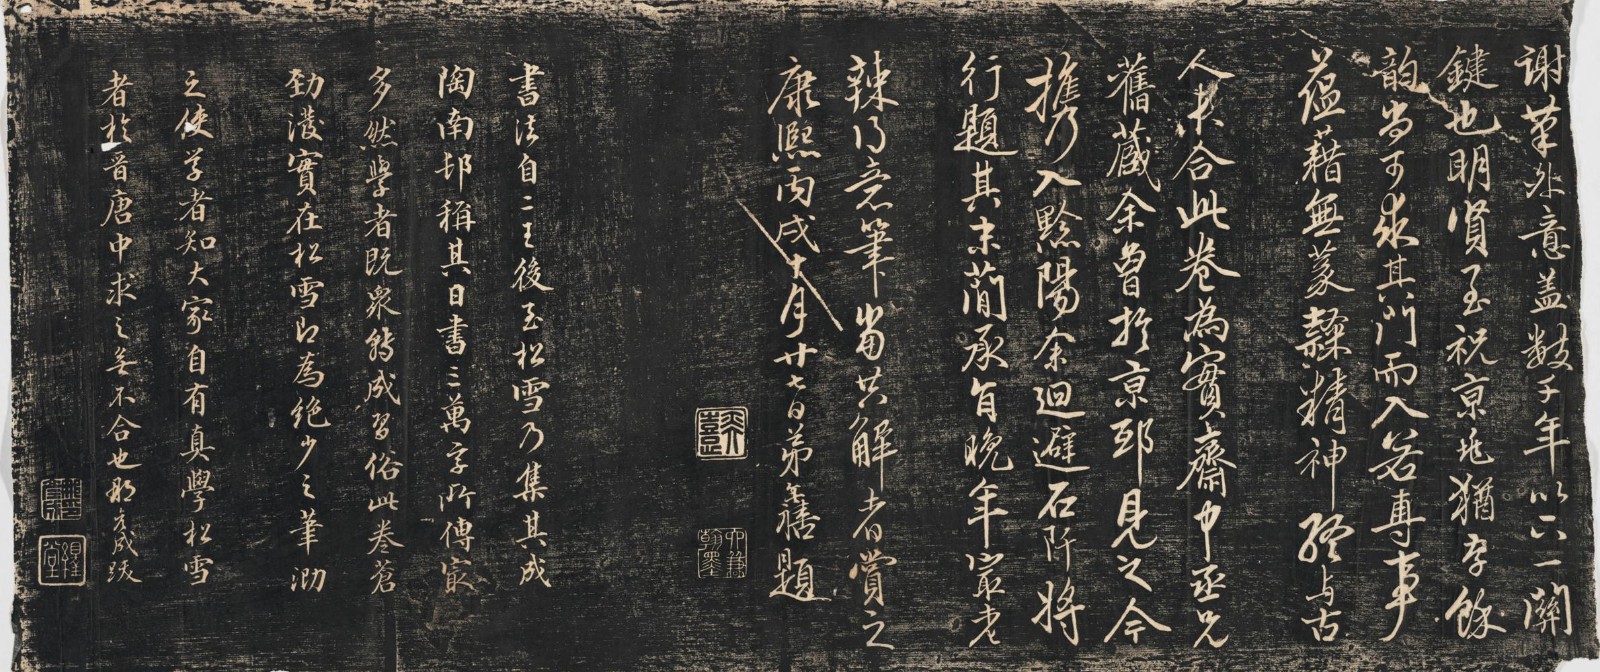 謝筆外意盖數千年以六一關
鍵也明賢至祝京兆猶存餘
韵尚可求其門而入若専事
蘊藉無篆隸精神終与古
人未合此卷為實齋中丞兄
舊藏余曾於京邸見之今
携乃入黔陽余迴避石阡將
行題其末蘭承旨晚年最老
辣得意筆當共解者賞之
康熙丙戌十月廿七日弟禧題
書法自二王後至松雪乃集其成
陶南邨稱其日書三萬字所傳宜
多然學者既衆輒成習俗此卷蒼
勁潑實在松雪即為絶少之筆泐
之使学者知大家自有真學松雪
者於晋唐中求之無不合也成跋